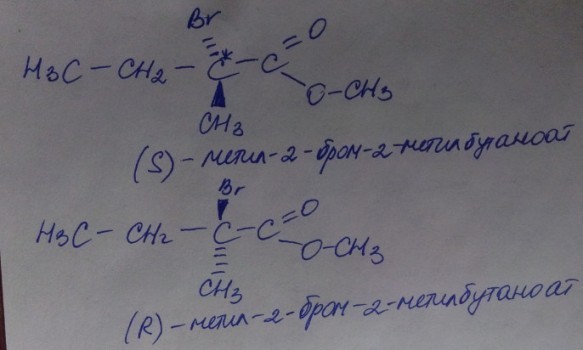 Br
H3C - CH2 - C* - C = O
O - CH3
CH3
(S) - метил-2-бром-2-метилбутаноат
Br
H3C - CH2 - C - C = O
O - CH3
CH3
(R) - метил-2-бром-2-метилбутаноат